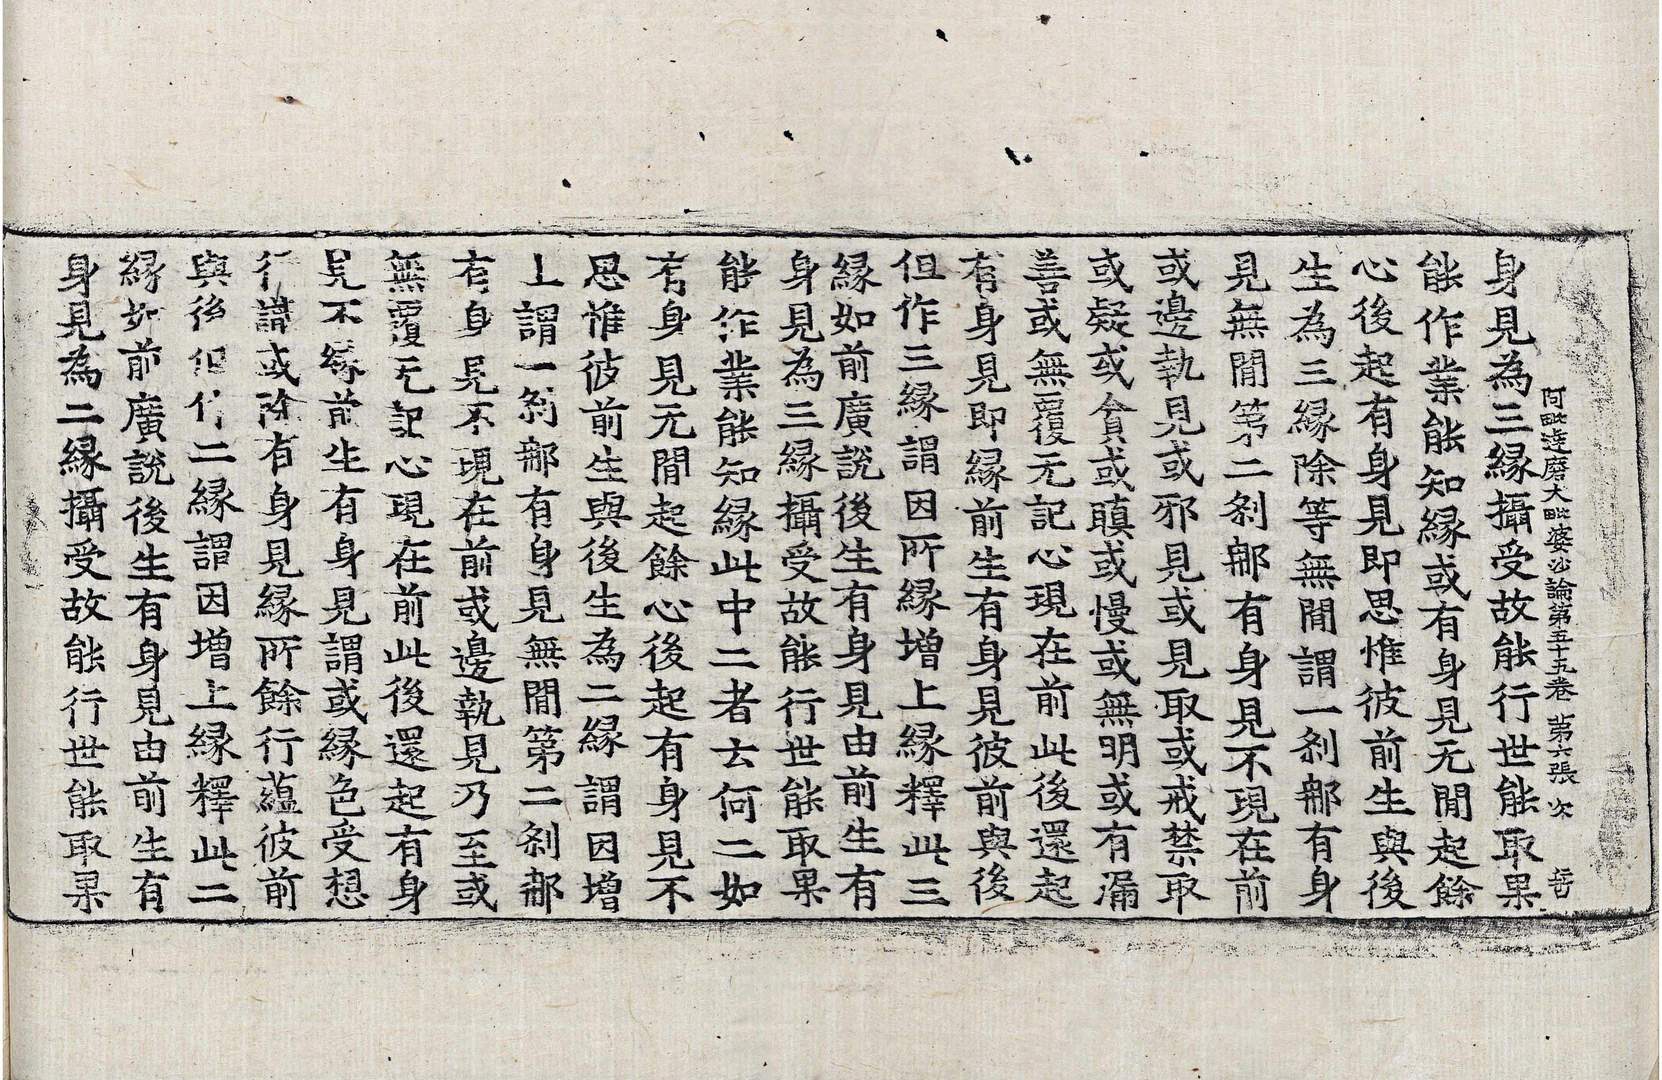 阿毗達磨大毗婆沙論第五十五卷 第六張 次
身見為三緣攝受故能行世能取果
能作業能知緣或有身見无閒起餘
心後起有身見即思惟彼前生與後
生為三緣除等無閒謂一刹那有身
見無閒第二刹那有身見不現在前
或邊執見或邪見或見取或戒禁取
或疑或貪或瞋或慢或無明或有漏
善或無覆无記心現在前此後還起
有身見即緣前生有身見彼前與後
但作三緣謂因所緣增上緣釋此三
緣如前廣說後生有身見由前生有
身見為三緣攝受故能行世能取果
能作業能知緣此中二者云何二如
有身見无閒起餘心後起有身見不
思惟彼前生與後生為二緣謂因增
上謂一刹那有身見無閒第二刹那
有身見不現在前或邊執見乃至或
無覆无記心現在前此後還起有身
見不緣前生有身見謂或緣色受想
行識或除有身見緣所餘行蘊彼前
與後但作二緣謂因增上緣釋此二
緣如前廣說後生有身見由前生有
身見為二緣攝受故能行世能取果